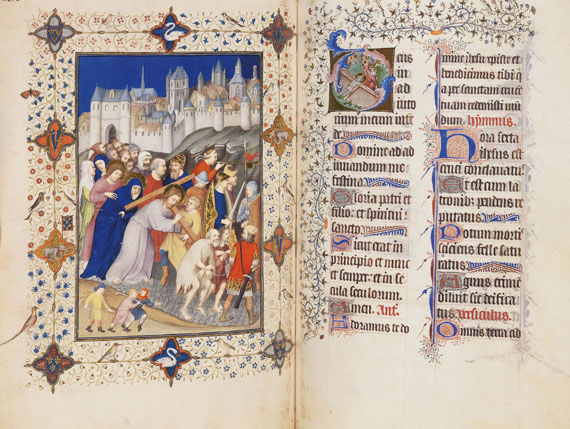 Deus
in ad
iuto
rium meum inten
de
Domine ad ad
iuuandum me
festina
Gloria patri et
filio: et spiritui
sancto
Sicut erat in
principio et nunc
et semper: et in se
cula seculorum.
Amen. Ant.
Adoramus te do
mine et
benedicimus tibi q
per sanctam cruce
tuam redemisti mun
dum. hympnus.
Hora sexta
ihesus est
cruci conclauatus
est cum la
tronibus pendens re
putatus
Potum
felle satu
ratus
Agnus crimen
diluit sic
tus. Versiculus.
Omnis terra ad